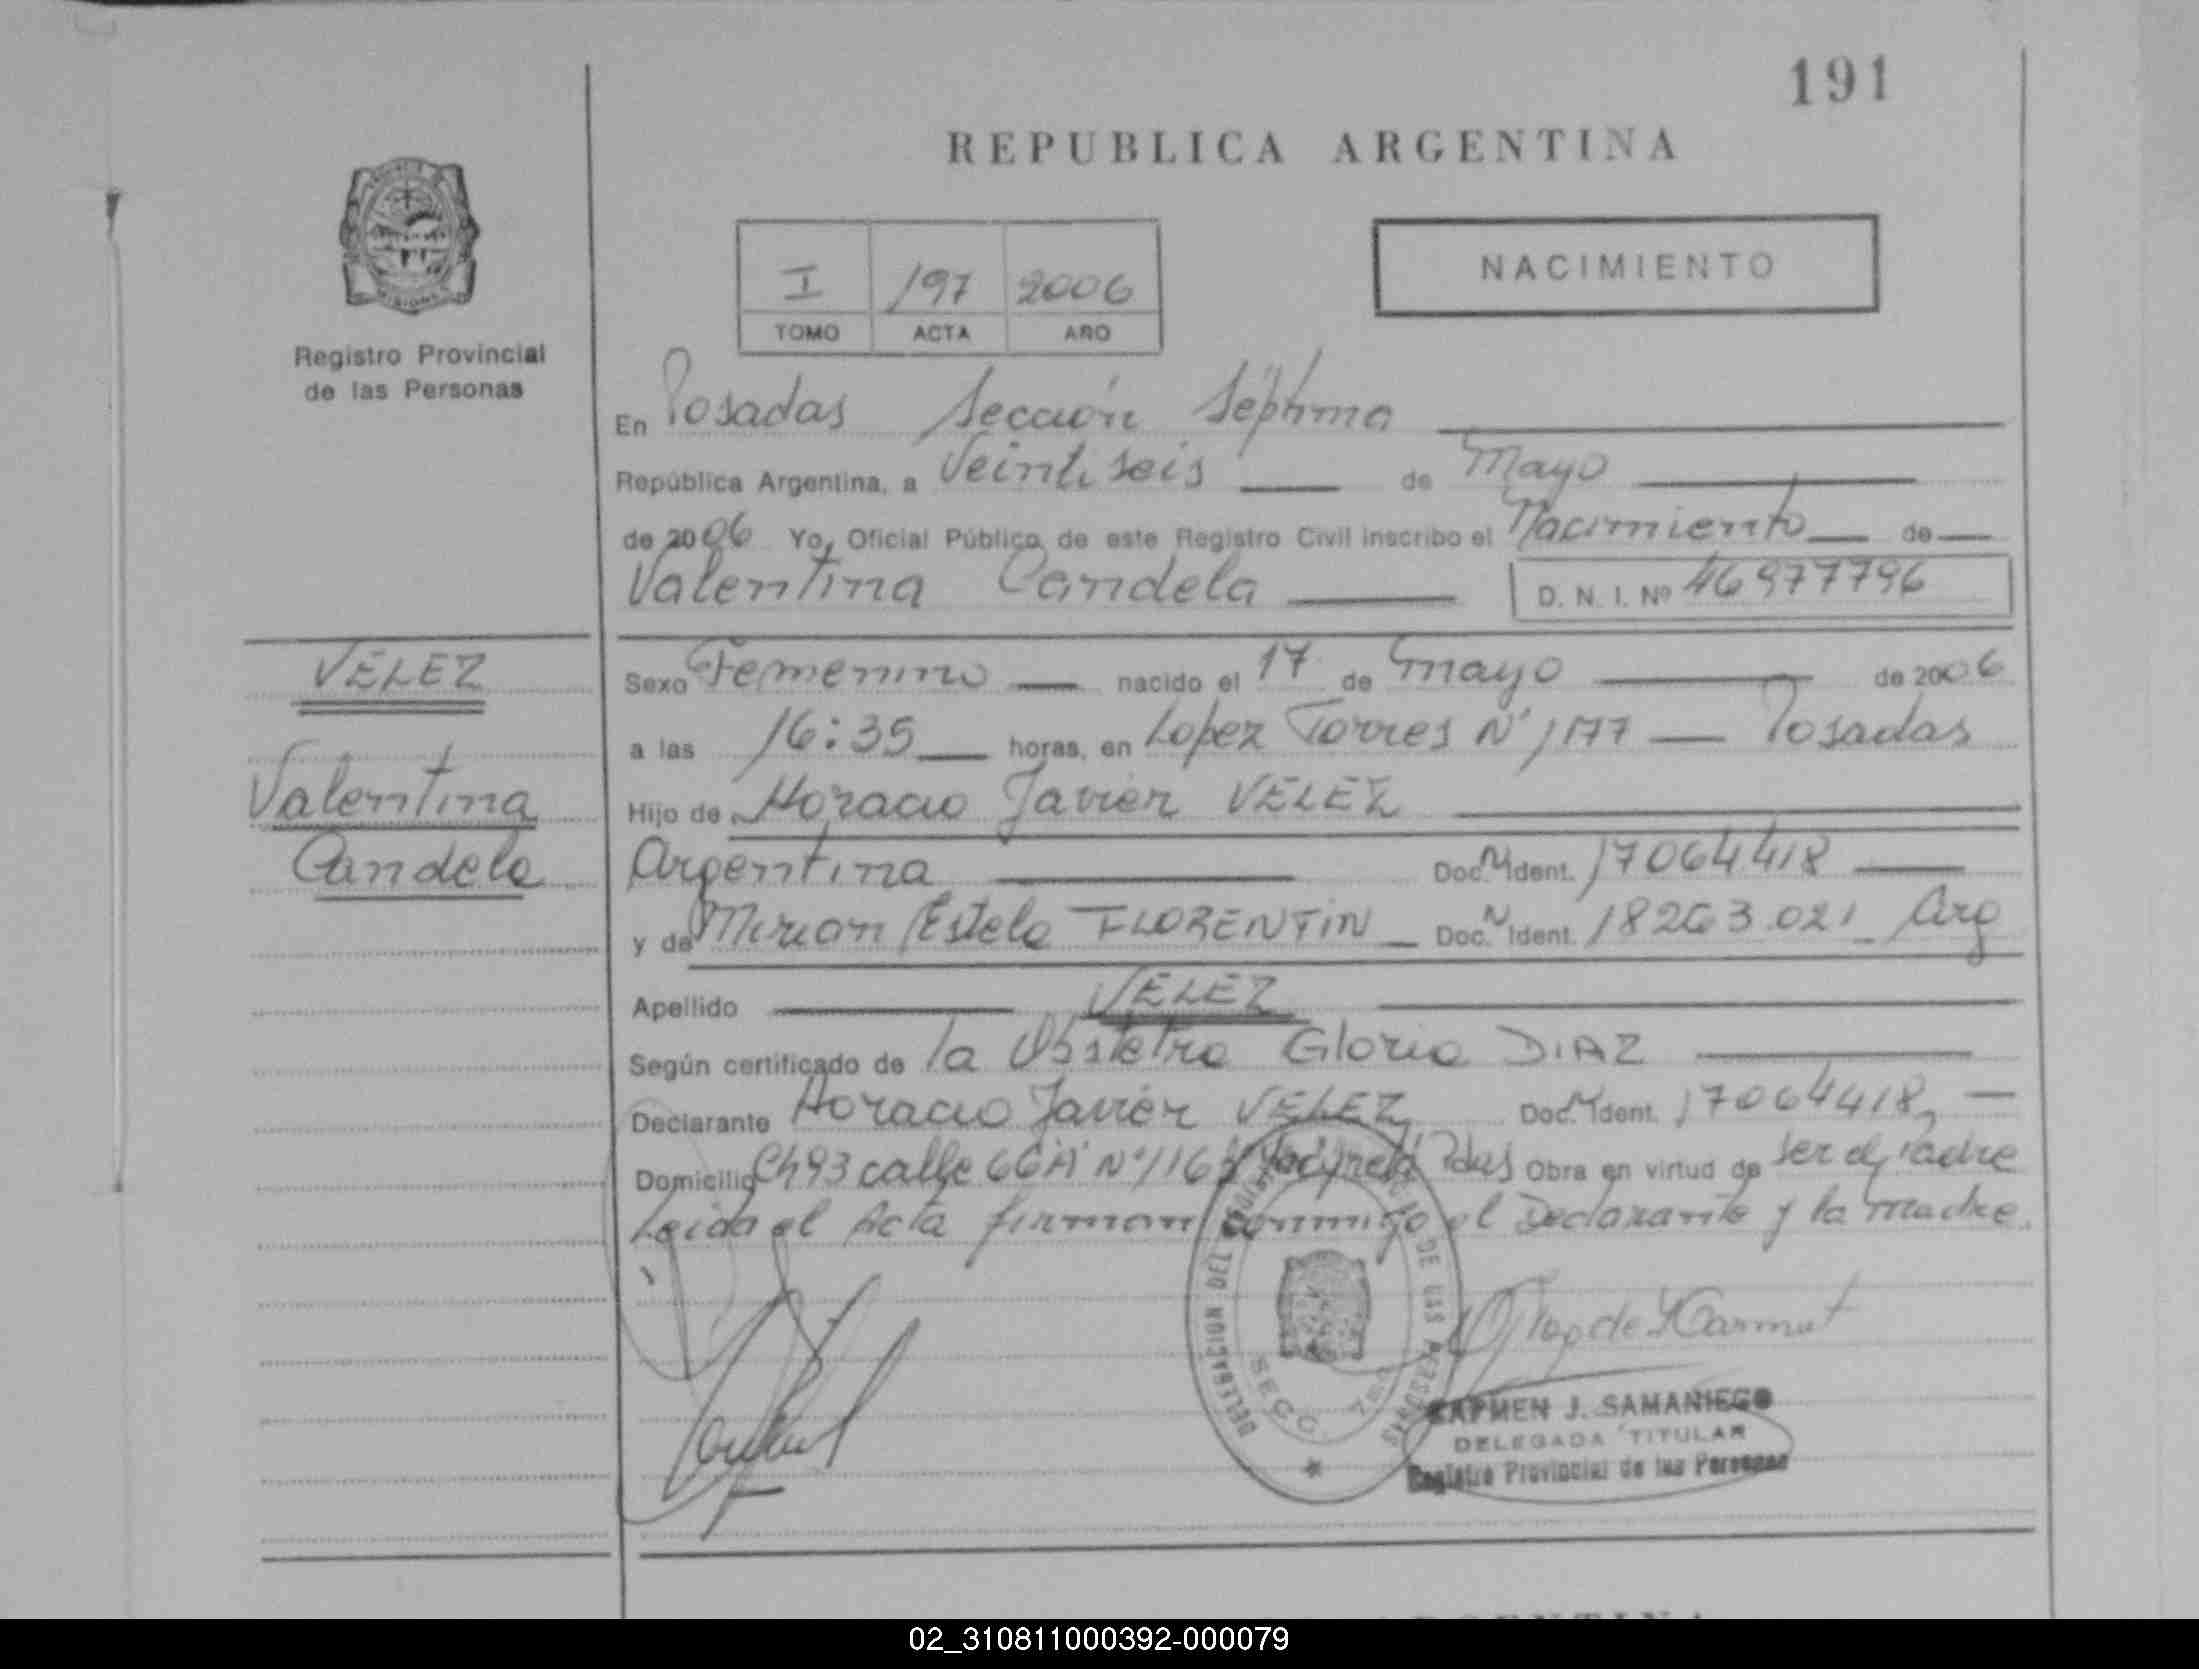 191
REPUBLICA ARGENTINA
PROVINCIA DE
MISIONES
Registro Provincial
de las Personas
I 197 2006
TOMO ACTA AÑO
NACIMIENTO
En Posadas Sección Séptima
República Argentina, a Veintiseis de Mayo
de 2006 Yo, Oficial Público de este Registro Civil inscribo el Nacimiento de
Valentina Candela D. N. I. Nº 46977796
VELEZ
Valentina
Candela
Sexo Femenino nacido el 17 de mayo de 2006
a las 16:35 horas, en Lopez Torres Nº 1177 Posadas
Hijo de Horacio Javier VELEZ
Argentina Doc. N Ident. 17064418
y de Mirian Estela FLORENTIN Doc. N Ident. 18263.021 Arg
Apellido VELEZ
Según certificado de la Obstetra Gloria DIAZ
Declarante Horacio Javier VELEZ Doc. N Ident. 17064418,
Domicilio Ch93 calle 66A Nº 116 Pdas Obra en virtud de ser el Padre
Leida el Acta firman conmigo el Declarante y la madre.
DELEGACION DEL REGISTRO DE LAS PERSONAS
SECC. 7ma
CARMEN J. SAMANIEGO
DELEGADA TITULAR
Registro Provincial de las Personas
02_310811000392-000079